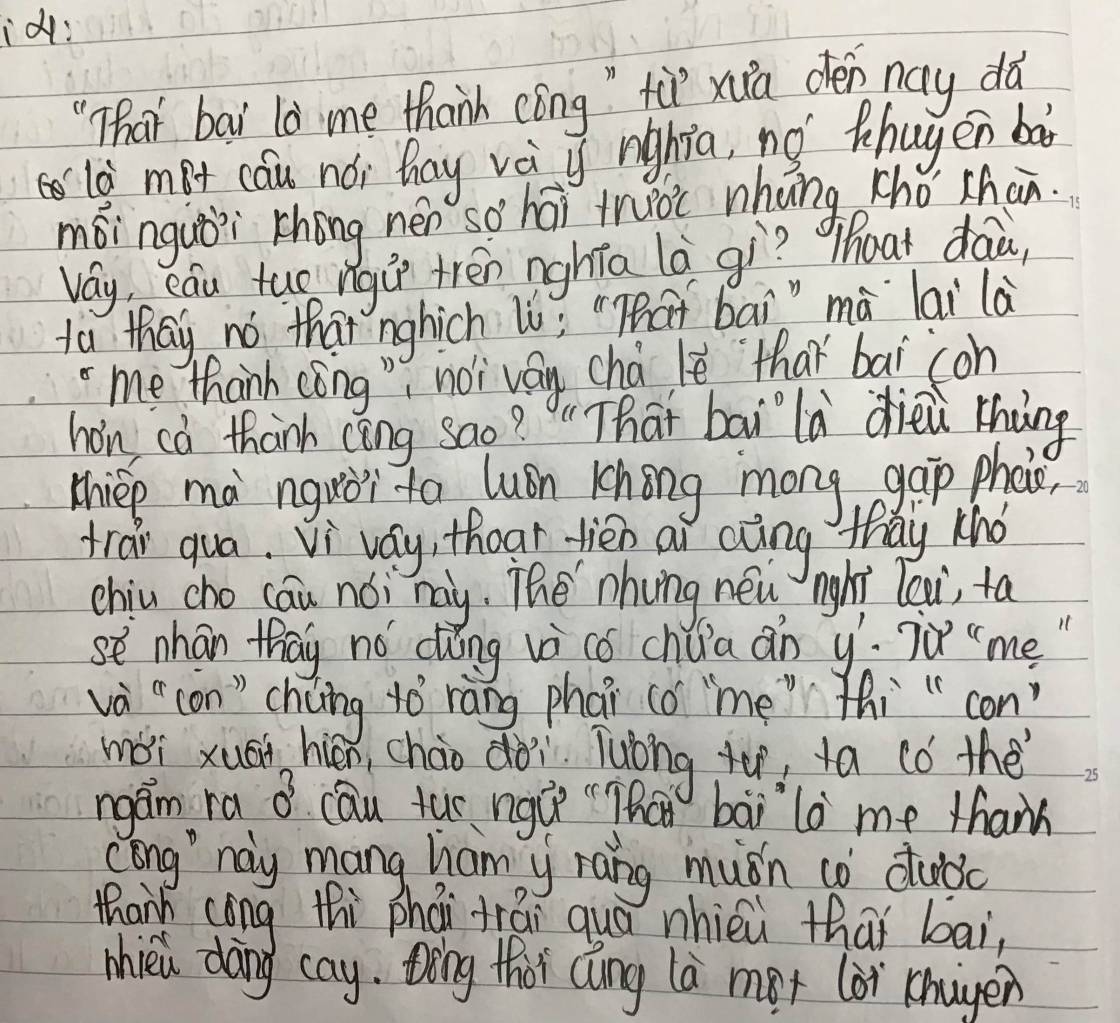 i 4:
"Thất bại là mẹ thành công" từ xưa đến nay đã
là một câu nói hay và ý nghĩa, nó khuyên bảo
mỗi người không nên sợ hãi trước những khó khăn.
15
Vậy, câu tục ngữ trên nghĩa là gì? Thoạt đầu,
ta thấy nó thật nghịch lí: "Thất bại" mà lại là
"mẹ thành công", nói vậy chả lẽ thất bại còn
hơn cả thành công sao? "Thất bại" là điều khủng
khiếp mà người ta luôn không mong gặp phải,
20
trải qua. Vì vậy, thoạt tiên ai cũng thấy khó
chịu cho câu nói này. Thế nhưng nếu nghĩ lại, ta
sẽ nhận thấy nó đúng và có chứa ẩn ý. Từ "mẹ"
và "con" chứng tỏ rằng phải có "mẹ" thì "con"
mới xuất hiện, chào đời. Tương tự, ta có thể
25
ngẫm ra ở câu tục ngữ "Thất bại là mẹ thành
công" này mang hàm ý rằng muốn có được
thành công thì phải trải qua nhiều thất bại,
nhiều đắng cay. Đồng thời cũng là một lời khuyên